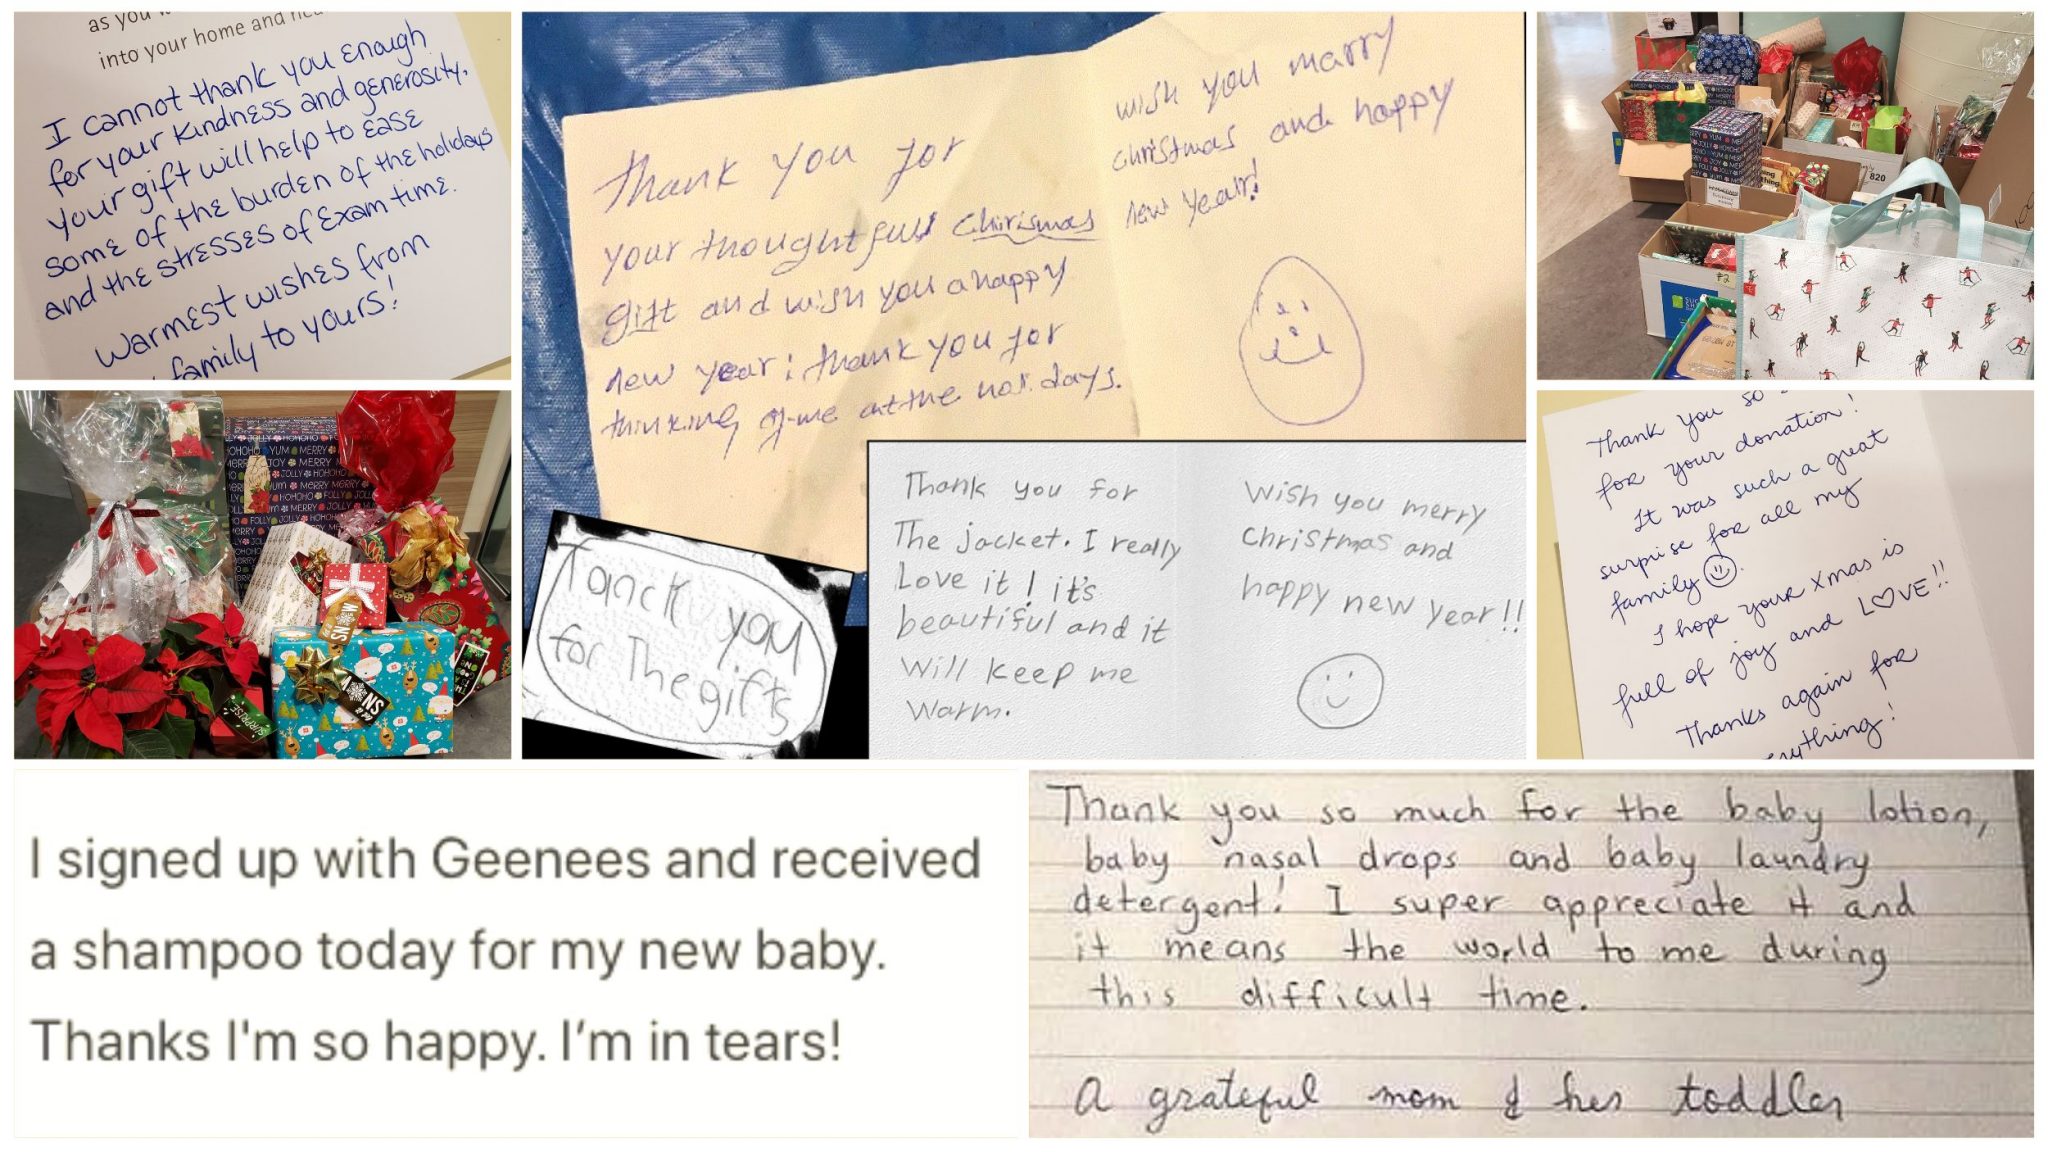 as you
into your home and
I cannot thank you enough
for your kindness and generosity.
your gift will help to ease
some of the burden of the holidays
and the stresses of Exam time.
Warmest wishes from
family to yours!
Thank you for
your thoughtfull Chirismas
gift and wish you a happy
new year; thank you for
thinking of me at the holidays.
wish you marry
christmas and happy
new year!
820
Thank you so
for your donation!
It was such a great
surprise for all my
family
I hope your xmas is
full of joy and L♡VE!!
Thanks again for
everything!
HOHOHO YUM MERRY
SURPRISE
Tanck you
for The gifts
Thank you for
The jacket. I really
Love it! it's
beautiful and it
Will keep me
Warm.
Wish you merry
Christmas and
happy new year!!
I signed up with Geenees and received
a shampoo today for my new baby.
Thanks I'm so happy. I'm in tears!
Thank you so much for the baby lotion,
baby nasal drops and baby laundry
detergent! I super appreciate it and
it means the world to me during
this difficult time.
A grateful mom & her toddler